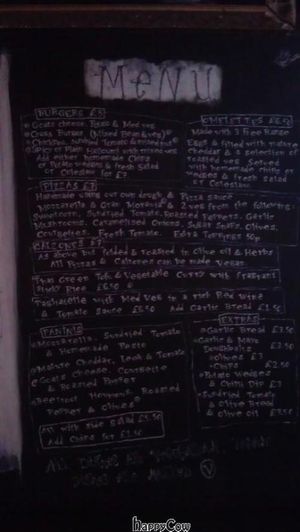 MENU
BURGERS £5
Goats cheese, Pesto & Med veg
Cross Burger (Mixed Bean & veg)
Spicy or Plain Halloumi with mixed veg
Add either homemade chips
or Potato wedges & fresh salad
or Coleslaw for £3
OMELETTES £6.50
Made with 3 Free Range
Eggs & filled with mature
Cheddar & a selection of
roasted veg. Served
with homemade chips or
wedges & Fresh Salad
or Coleslaw
PIZZAS £7
Homemade using our own dough & Pizza sauce
Mozzarella & & 2 veg from the following:
Sweetcorn, Sundried Tomato, Roasted Peppers, Garlic
Mushrooms, Caramelised Onions, Olives,
Courgettes, Fresh Tomato. Extra Toppings 50p
CALZONES £7
As above but folded & coated in Olive oil & Herbs
All Pizzas & Calzones can be made vegan
Thai Green Tofu & Vegetable Curry with Fragrant
Rice £6.50
Tagliatelle with Med Veg in a rich Red wine
& Tomato Sauce £6.50 Add Garlic Bread £1.50
PANINIS
Mozzarella, Sundried Tomato
& Homemade Pesto
Mature Cheddar, Leek & Tomato
Goats Cheese, Courgette
& Roasted Pepper
Beetroot Houmous, Roasted
Pepper & Olives
All with side salad £5.50
Add chips for £1.50
EXTRAS
Garlic Bread £3.50
Garlic & Mayo
Olives £3
Chips £2.50
Potato Wedges
& Chilli Dip £3
Sundried Tomato
& Olive Bread
& Olive oil £3.50
V
happyCow